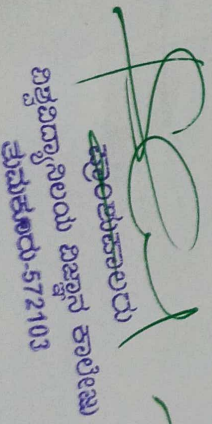 ಪ್ರಾಂಶುಪಾಲರು
ವಿಶ್ವವಿದ್ಯಾನಿಲಯ ವಿಜ್ಞಾನ ಕಾಲೇಜು
ತುಮಕೂರು-572103